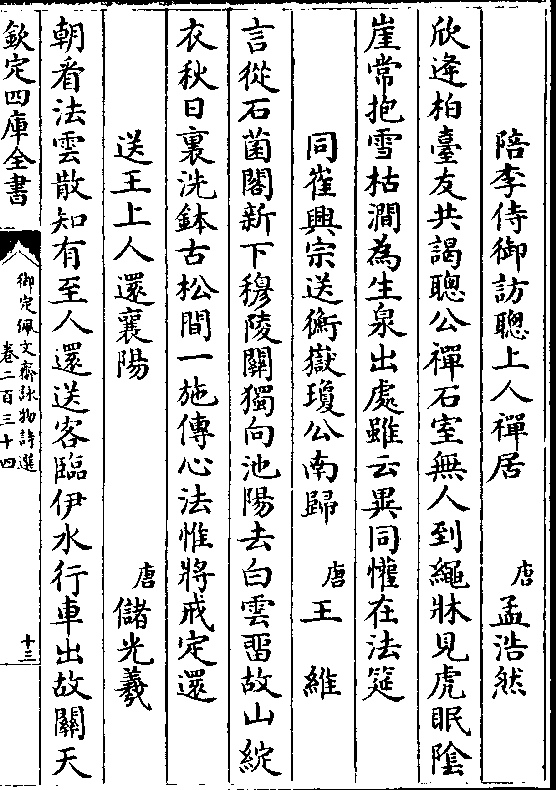 陪李侍御訪聰上人禪居　唐　孟浩然
欣逄柏臺友共謁聰公禪石室無人到繩牀見虎眠陰
崖常抱雪枯澗為生泉出處雖云異同懽在法筵
同崔興宗送衡嶽瓊公南歸　唐　王　維
言從石菌閣新下穆陵關獨向池陽去白雲畱故山綻
衣秋日裏洗鉢古松間一施傳心法惟將戒定還
送王上人還襄陽　唐　儲光羲
朝看法雲散知有至人還送客臨伊水行車出故關天
欽定四庫全書
御定佩文齋詠物詩選
卷二百三十四
十三